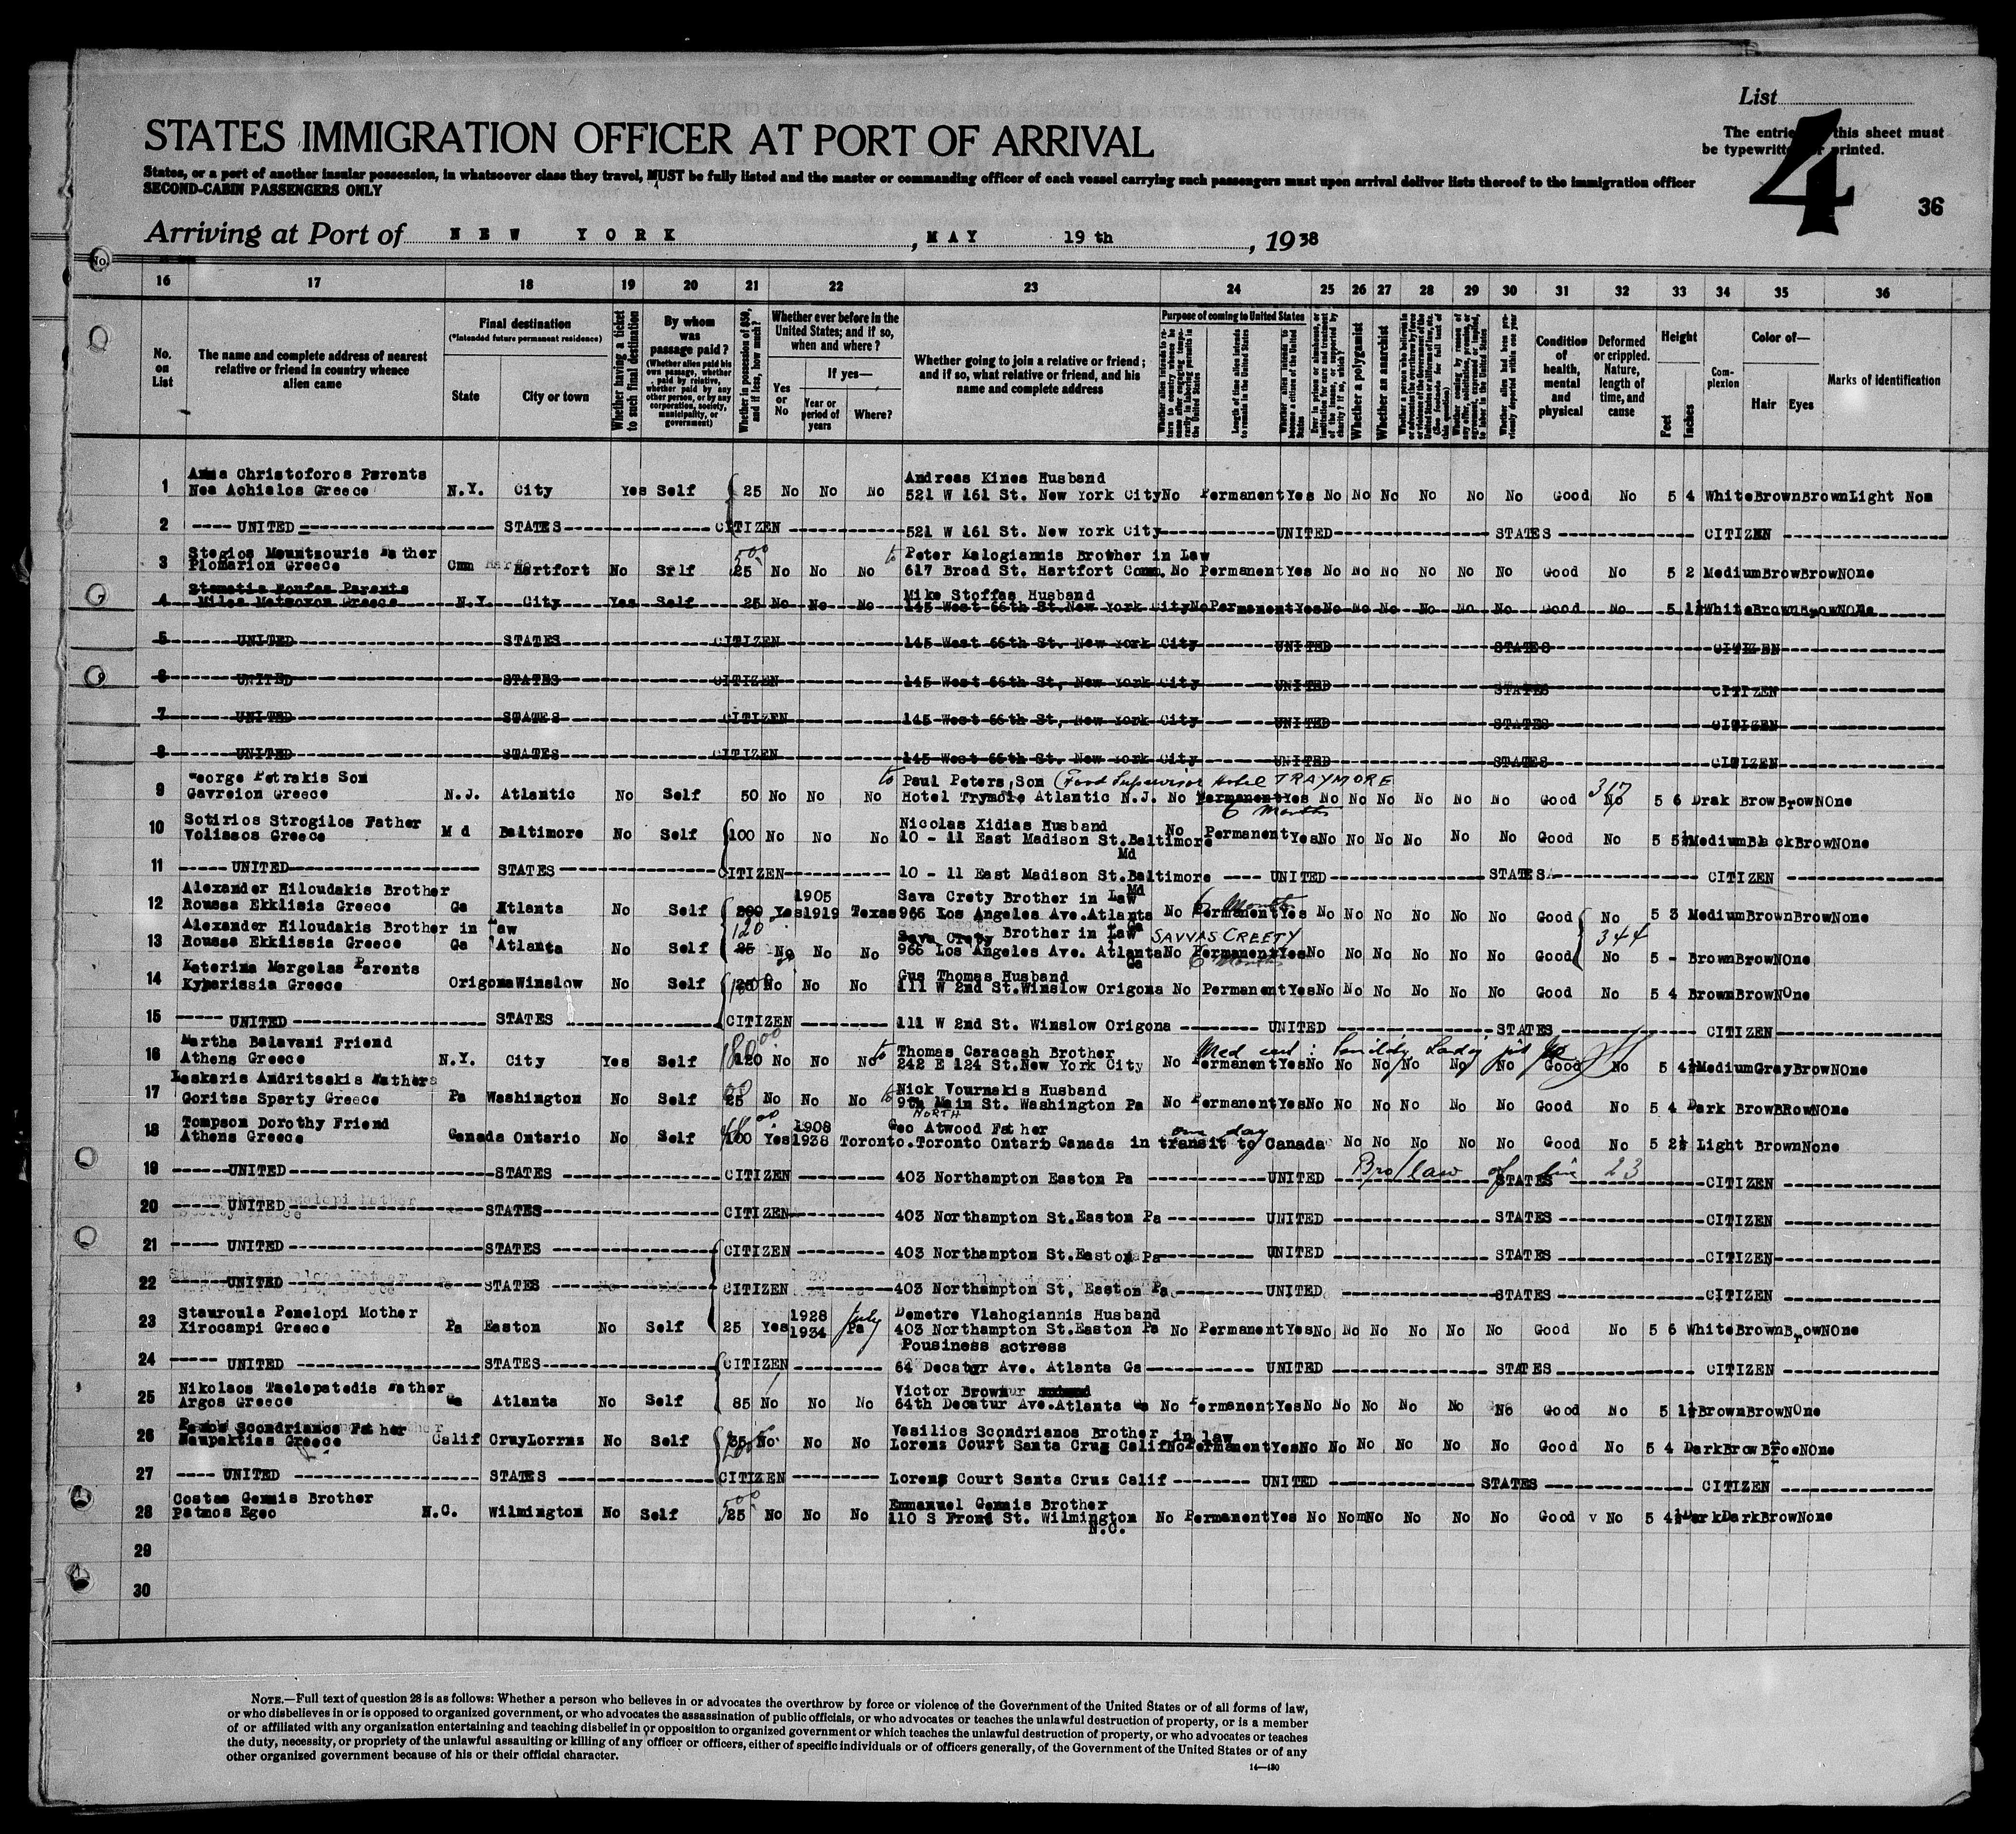 List
STATES IMMIGRATION OFFICER AT PORT OF ARRIVAL
The entries this sheet must
be typewritten or printed.
4
36
States, or a port of another insular possession, in whatsoever class they travel, MUST be fully listed and the master or commanding officer of each vessel carrying such passengers must upon arrival deliver lists thereof to the immigration officer
SECOND-CABIN PASSENGERS ONLY
Arriving at Port of NEW YORK, MAY 19 th, 1938
No.
16 17 18 19 20 21 22 23 24 25 26 27 28 29 30 31 32 33 34 35 36
No. on List
The name and complete address of nearest relative or friend in country whence alien came
Final destination
(*Intended future permanent residence)
State
City or town
Whether having a ticket to such final destination
By whom was passage paid?
(Whether alien paid his own passage, whether paid by relative, whether paid by any other person, or by any corporation, society, municipality, or government)
Whether in possession of $50, and if less, how much?
Whether ever before in the United States; and if so, when and where?
Yes or No
If yes—
Year or period of years
Where?
Whether going to join a relative or friend; and if so, what relative or friend, and his name and complete address
Purpose of coming to United States
Length of time alien intends to remain in the United States
Whether alien intends to become a citizen of the United States
Whether a polygamist
Whether an anarchist
Condition of health, mental and physical
Deformed or crippled. Nature, length of time, and cause
Height
Feet
Inches
Complexion
Color of—
Hair
Eyes
Marks of Identification
1 Anna Christoforos Parents Andreas Kines Husband
Nea Achialos Greece N.Y. City Yes Self 25 No No No 521 W 161 St. New York City No Permanent Yes No No No No No No Good No 5 4 White Brown Brown Light Non
2 ---- UNITED ---- STATES ---- CITIZEN ---- 521 W 161 St. New York City ---- UNITED ---- STATES ---- CITIZEN
3 Stegios Mountzouris Father 500 to Peter Kalogiannis Brother in Law
Plomarion Greece Cnn Hartfort No Srlf 25 No No No 617 Broad St. Hartfort Conn. No Permanent Yes No No No No No No Good No 5 2 Medium Brow Brow NOne
4 Stamatia Parents Mike Stoffas Husband
Greece N.Y. City Yes Self 25 No No No 145 West 66th St. New York City No Permanent Yes No No No No No No Good No 5 1½ White Brown Brow NONe
5 UNITED STATES CITIZEN 145 West 66th St. New York City UNITED STATES CITIZEN
6 UNITED STATES CITIZEN 145 West 66th St, New York City UNITED STATES CITIZEN
7 UNITED STATES CITIZEN 145 West 66th St, New York City UNITED STATES CITIZEN
8 UNITED STATES CITIZEN 145 West 66th St. New York City UNITED STATES CITIZEN
9 George Petrakis Son to Paul Peters, Son (Food Supervisor Hotel TRAYMORE 317
Gavreion Greece N.J. Atlantic No Self 50 No No No Hotel Trymore Atlantic N.J. No Permanent Yes No No No No No No Good No 5 6 Drak Brow Brow NOne
6 Months
10 Sotirios Strogilos Father Nicolas Xidias Husband
Volissos Greece M d Baltimore No Self 100 No No No 10 - 11 East Madison St. Baltimore No Permanent Yes No No No No No No Good No 5 5½ Medium Black Brow NOne
Md
11 ---- UNITED ---- STATES ---- CITIZEN ---- 10 - 11 East Madison St. Baltimore ---- UNITED ---- STATES ---- CITIZEN
Md
12 Alexander Hiloudakis Brother 1905 Sava Crety Brother in Law 6 Months
Roussa Ekklisia Greece Ga Atlanta No Self 200 Yes 1919 Texas 966 Los Angeles Ave. Atlanta No Permanent Yes No No No No No No Good No 5 3 Medium Brown Brow None
Ga
13 Alexander Hiloudakis Brother in Law 120 Sava Crety Brother in Law SAVVAS CREETY 344
Roussa Ekklissia Greece Ga Atlanta No Self 25 No No No 966 Los Angeles Ave. Atlanta No Permanent Yes No No No No No No Good No 5 - Brown Brow NOne
Ga 6 Months
14 Katerina Margelas Parents Gus Thomas Husband
Kyparissia Greece Origona Winslow No Self No No No 111 W 2nd St. Winslow Origona No Permanent Yes No No No No No No Good No 5 4 Brown Brow NOne
15 ---- UNITED ---- STATES ---- CITIZEN ---- 111 W 2nd St. Winslow Origona ---- UNITED ---- STATES ---- CITIZEN
16 Martha Balavani Friend 180.00 to Thomas Caracash Brother Med cert: Senility
Athens Greece N.Y. City Yes Self 120 No No No 242 E 124 St. New York City No Permanent Yes No No No No No No Good No 5 4½ Medium Gray Brow NOne
17 Laskaris Andritsakis Fathers to Nick Vournakis Husband
Goritsa Sparty Greece Pa Washington No Self 25 No No No 9th Main St. Washington Pa No Permanent Yes No No No No No No Good No 5 4 Dark Brow BRow NOne
NORTH
18 Tompson Dorothy Friend 1908 Geo Atwood Father one day
Athens Greece Canada Ontario No Self 100 Yes 1938 Toronto. Toronto Ontario Canada in transit to Canada No No No No No Good No 5 2½ Light Brown None
19 ---- UNITED ---- STATES ---- CITIZEN ---- 403 Northampton Easton Pa ---- UNITED ---- Bro/law of line 23 STATES ---- CITIZEN
20 ---- UNITED ---- STATES ---- CITIZEN ---- 403 Northampton St. Easton Pa ---- UNITED ---- STATES ---- CITIZEN
21 ---- UNITED ---- STATES ---- CITIZEN ---- 403 Northampton St. Easton Pa ---- UNITED ---- STATES ---- CITIZEN
22 ---- UNITED ---- STATES ---- CITIZEN ---- 403 Northampton St, Easton Pa ---- UNITED ---- STATES ---- CITIZEN
23 Stauroula Penelopi Mother 1928 July Demetre Vlahogiannis Husband
Xirocampi Greece Pa Easton No Self 25 Yes 1934 Pa 403 Northampton St. Easton Pa No Permanent Yes No No No No No No Good No 5 6 White Brown Brow NOne
Pousiness actress
24 ---- UNITED ---- STATES ---- CITIZEN ---- 64 Decatur Ave. Atlanta Ga ---- UNITED ---- STATES ---- CITIZEN
25 Nikolaos Taelepatedis Father Victor Brown
Argos Greece Ga Atlanta No Self 85 No No No 64th Decatur Ave. Atlanta Ga No Permanent Yes No No No No No No Good No 5 1½ Brown Brow NOne
26 Scondrianos Father Vasilios Scondrianos Brother in law
Naupaktias Greece Calif CruyLorrnz No Self No No No Lorenz Court Santa Cruz Calif No Permanent Yes No No No No No No Good No 5 4 Dark Brow NOne
27 ---- UNITED ---- STATES ---- CITIZEN ---- Lorenz Court Santa Cruz Calif ---- UNITED ---- STATES ---- CITIZEN
28 Costas Gennis Brother 500 Emmanuel Gennis Brother
Patmos Egeo N.C. Wilmington No Self 25 No No No 110 S Front St. Wilmington No Permanent Yes No No No No No No Good v No 5 4½ Dark Dark Brow None
N.C.
29
30
NOTE.—Full text of question 28 is as follows: Whether a person who believes in or advocates the overthrow by force or violence of the Government of the United States or of all forms of law,
or who disbelieves in or is opposed to organized government, or who advocates the assassination of public officials, or who advocates or teaches the unlawful destruction of property, or is a member
of or affiliated with any organization entertaining and teaching disbelief in or opposition to organized government or which teaches the unlawful destruction of property, or who advocates or teaches
the duty, necessity, or propriety of the unlawful assaulting or killing of any officer or officers, either of specific individuals or of officers generally, of the Government of the United States or of any
other organized government because of his or their official character.
14—430